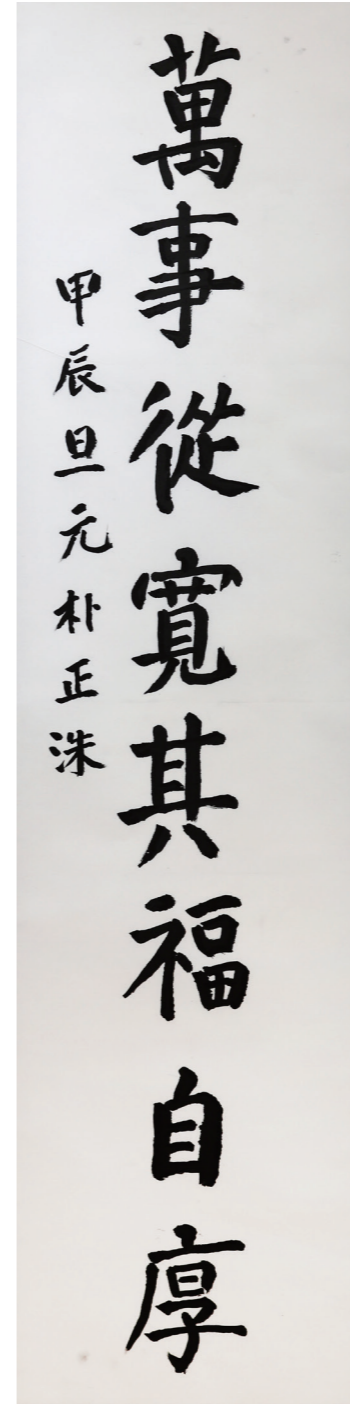 萬事從寬其福自厚
甲辰旦元朴正洙